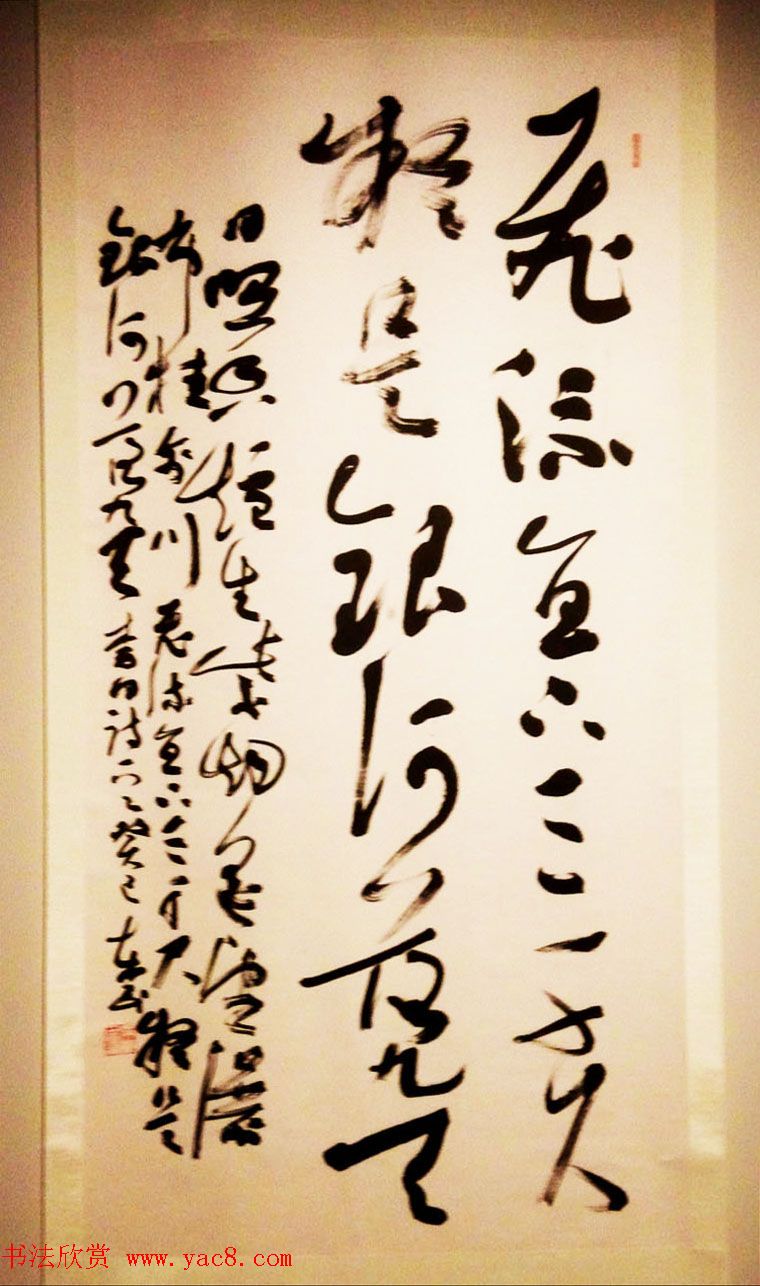 飛流直下三千尺
疑是銀河落九天
日照香爐生紫烟遥望瀑
布挂前川飛流直下三千尺疑是
銀河落九天 李白詩 癸巳
书法欣赏 www.yac8.com